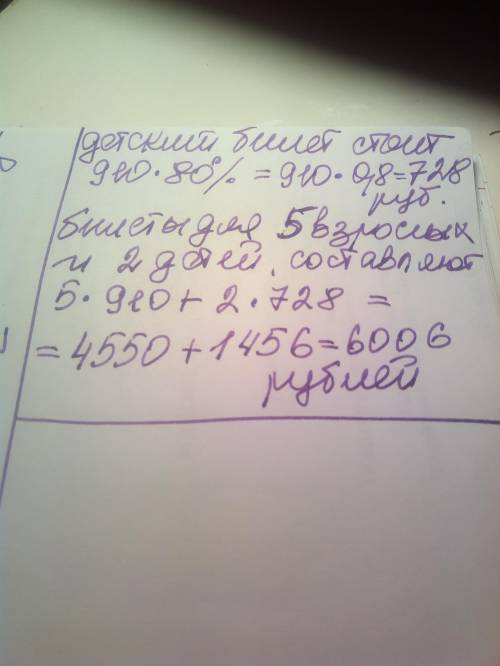 детский билет стоит
910·80% = 910·0,8=728
руб.
билеты для 5 взрослых
и 2 детей составляют
5·910+2·728 =
= 4550+1456=6006
рублей